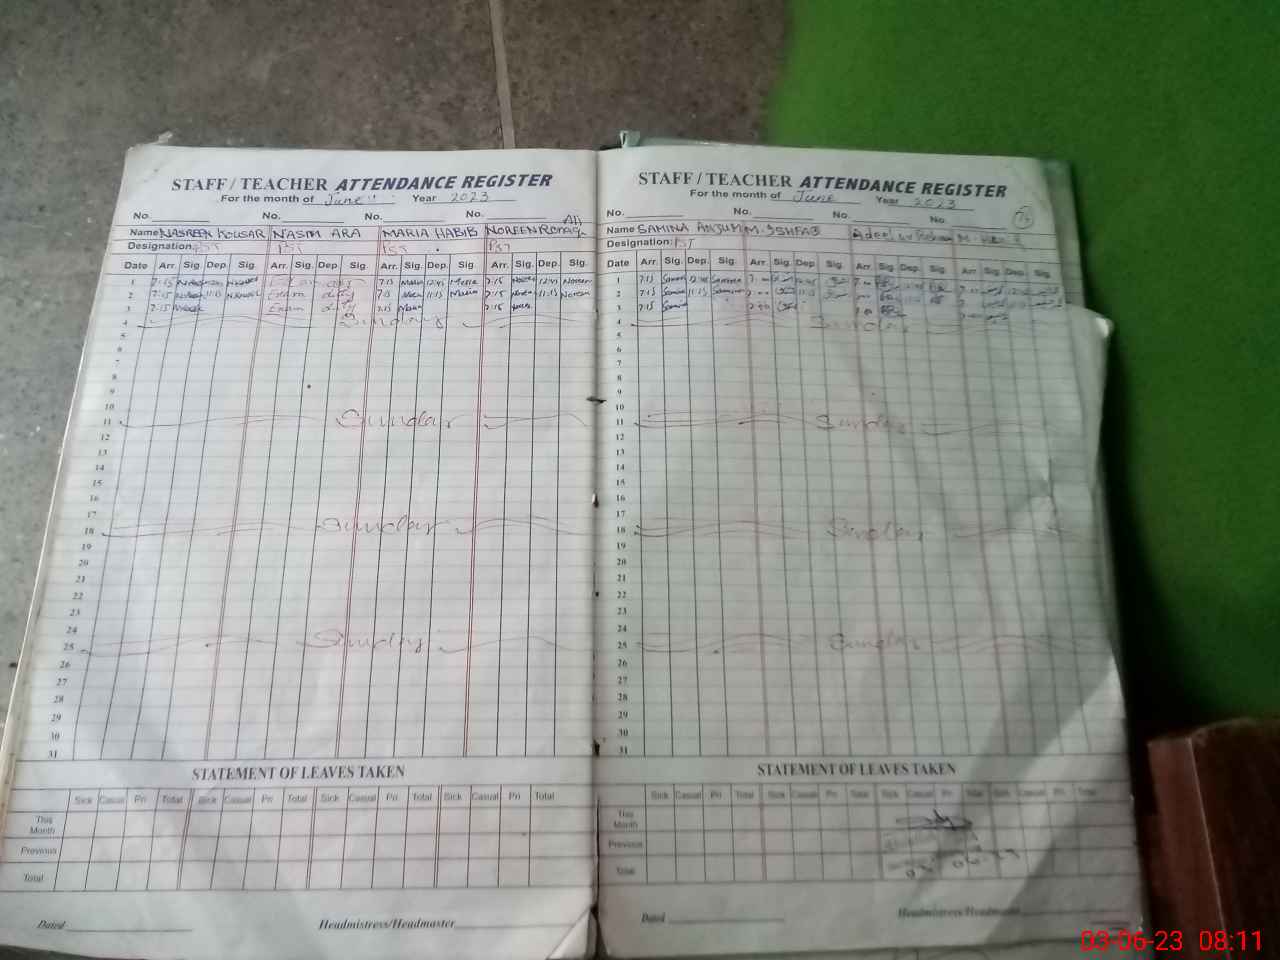 STAFF / TEACHER ATTENDANCE REGISTER
For the month of June Year 2023
No. No. No. No.
Name NASREEN KOUSAR NASIM ARA MARIA HABIB NOREEN
Designation: PST PST PST PST
Date Arr. Sig. Dep. Sig. Arr. Sig. Dep. Sig. Arr. Sig. Dep. Sig. Arr. Sig. Dep. Sig.
1 7:15 7:15 Maria 12:45 Maria 7:15 Noreen 12:45 Noreen
2 7:15 11:15 Exam duty 7:15 Maria 11:15 Maria 7:15 Noreen 11:15 Noreen
3 7:15 Exam duty 7:15 Maria 7:15
4 Sunday
5
6
7
8
9
10
11 Sunday
12
13
14
15
16
17
18 Sunday
19
20
21
22
23
24
25 Sunday
26
27
28
29
30
31
STATEMENT OF LEAVES TAKEN
Sick Casual Pri Total Sick Casual Pri Total Sick Casual Pri Total Sick Casual Pri Total
This Month
Previous
Total
Dated Headmistress/Headmaster
STAFF / TEACHER ATTENDANCE REGISTER
For the month of June Year 2023
No. No. No. No.
Name SAMINA ANJUM M. ISHFAQ Adeel ur Rehman M.
Designation: PST
Date Arr. Sig. Dep. Sig. Arr. Sig. Dep. Sig. Arr. Sig. Dep. Sig. Arr. Sig. Dep. Sig.
1 7:15 Samina 12:45 Samina
2 7:15 Samina 11:15 Samina
3 7:15 Samina
4 Sunday
5
6
7
8
9
10
11 Sunday
12
13
14
15
16
17
18 Sunday
19
20
21
22
23
24
25 Sunday
26
27
28
29
30
31
STATEMENT OF LEAVES TAKEN
Sick Casual Pri Total Sick Casual Pri Total Sick Casual Pri Total Sick Casual Pri Total
This Month
Previous
Total
Dated Headmistress/Headmaster
03-06-23 08:11